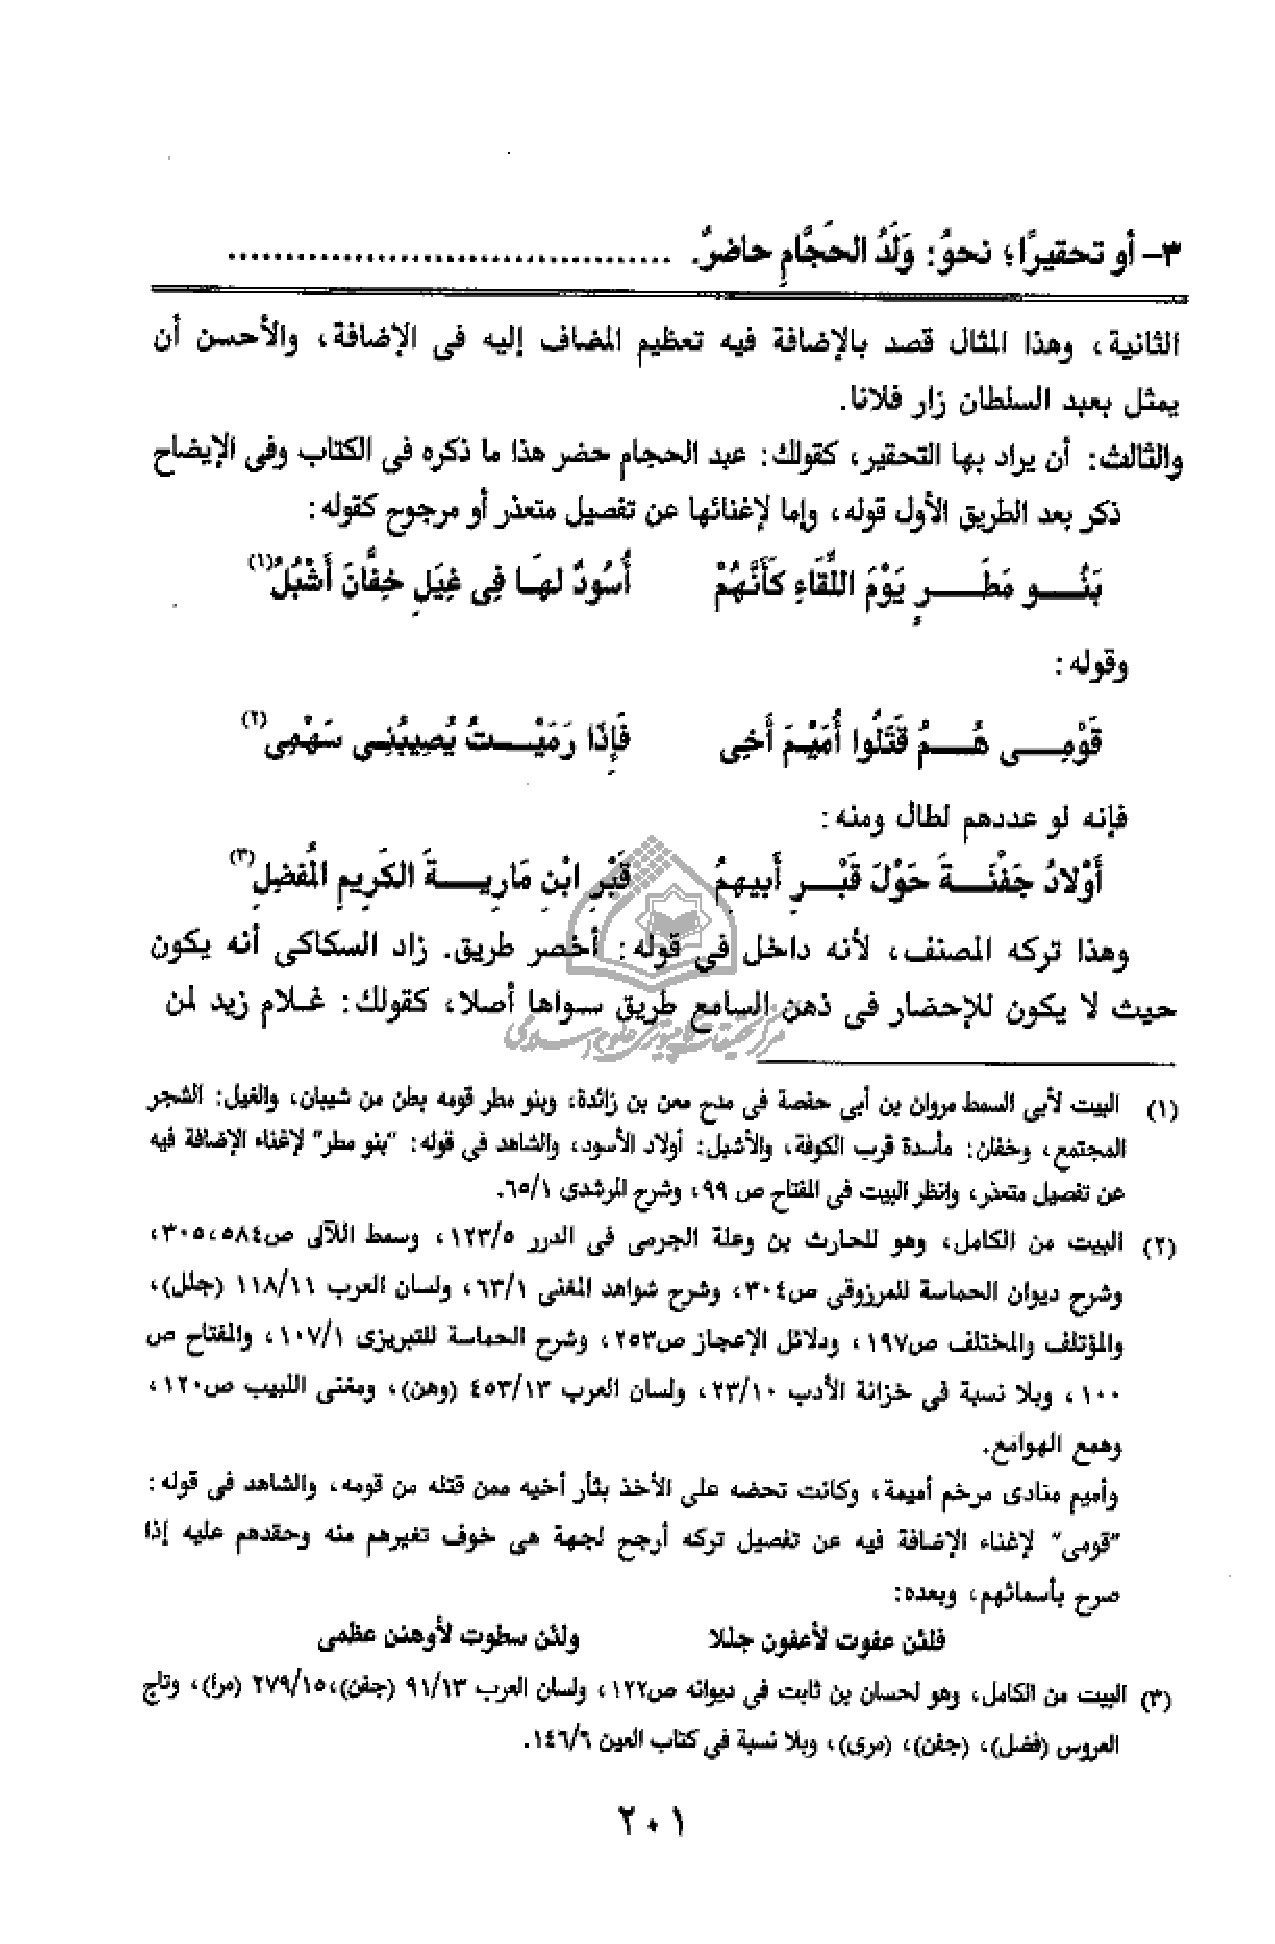 ٣- أو تحقيرًا؛ نحوُ: وَلَدُ الحَجَّامِ حاضرٌ. ......................................
الثانية، وهذا المثال قصد بالإضافة فيه تعظيم المضاف إليه فى الإضافة، والأحسن أن
يمثل بعبد السلطان زار فلانا.
والثالث: أن يراد بها التحقير، كقولك: عبد الحجام حضر هذا ما ذكره فى الكتاب وفى الإيضاح
ذكر بعد الطريق الأول قوله، وإما لإغنائها عن تفصيل متعذر أو مرجوح كقوله:
بَنُـــو مَطَـــــرٍ يَوْمَ اللِّقَاءِ كَأَنَّهُمْ أُسُودٌ لهَـا فِى غِيَلِ خِفَّانَ أَشْبُلُ(١)
وقوله:
قَوْمِـــــى هُـــمُ قَتَلُوا أُمَيْمَ أَخِى فَإِذَا رَمَيْـــــتُ يُصِيبُنِـــى سَهْمِى(٢)
فإنه لو عددهم لطال ومنه:
أَوْلادُ جَفْنَـــةَ حَوْلَ قَبْـــرِ أَبيهِمُ قَبْرِ ابْنِ مَارِيـــــةَ الكَرِيمِ المُفضِلِ(٣)
وهذا تركه المصنف، لأنه داخل فى قوله: أخصر طريق. زاد السكاكى أنه يكون
حيث لا يكون للإحضار فى ذهن السامع طريق سواها أصلا، كقولك: غلام زيد لمن
مركز تحقيقات كامپيوترى علوم اسلامى
(١) البيت لأبى السمط مروان بن أبى حفصة فى مدح معن بن زائدة، وبنو مطر قومه بطن من شيبان، والغيل: الشجر
المجتمع، وخفان: مأسدة قرب الكوفة، والأشبل: أولاد الأسود، والشاهد فى قوله: "بنو مطر" لإغناء الإضافة فيه
عن تفصيل متعذر، وانظر البيت فى المفتاح ص ٩٩، وشرح المرشدى ٦٥/١.
(٢) البيت من الكامل، وهو للحارث بن وعلة الجرمى فى الدرر ١٢٣/٥، وسمط اللآلى ص٣٠٥،٥٨٤،
وشرح ديوان الحماسة للمرزوقى ص٣٠٤، وشرح شواهد المغنى ٦٣/١، ولسان العرب ١١٨/١١ (جلل)،
والمؤتلف والمختلف ص١٩٧، ودلائل الإعجاز ص٢٥٣، وشرح الحماسة للتبريزى ١٠٧/١، والمفتاح ص
١٠٠، وبلا نسبة فى خزانة الأدب ٢٣/١٠، ولسان العرب ٤٥٣/١٣ (وهن)، ومغنى اللبيب ص١٢٠،
وهمع الهوامع.
وأميم منادى مرخم أميمة، وكانت تحضه على الأخذ بثأر أخيه ممن قتله من قومه، والشاهد فى قوله:
"قومى" لإغناء الإضافة فيه عن تفصيل تركه أرجح لجهة هى خوف تغيرهم منه وحقدهم عليه إذا
صرح بأسمائهم، وبعده:
فلئن عفوت لأعفون جللا ولئن سطوت لأوهنن عظمى
(٣) البيت من الكامل، وهو لحسان بن ثابت فى ديوانه ص١٢٢، ولسان العرب ٩١/١٣ (جفن)،٢٧٩/١٥ (مرا)، وتاج
العروس (فضل)، (جفن)، (مرى)، وبلا نسبة فى كتاب العين ١٤٦/٦.
٢٠١